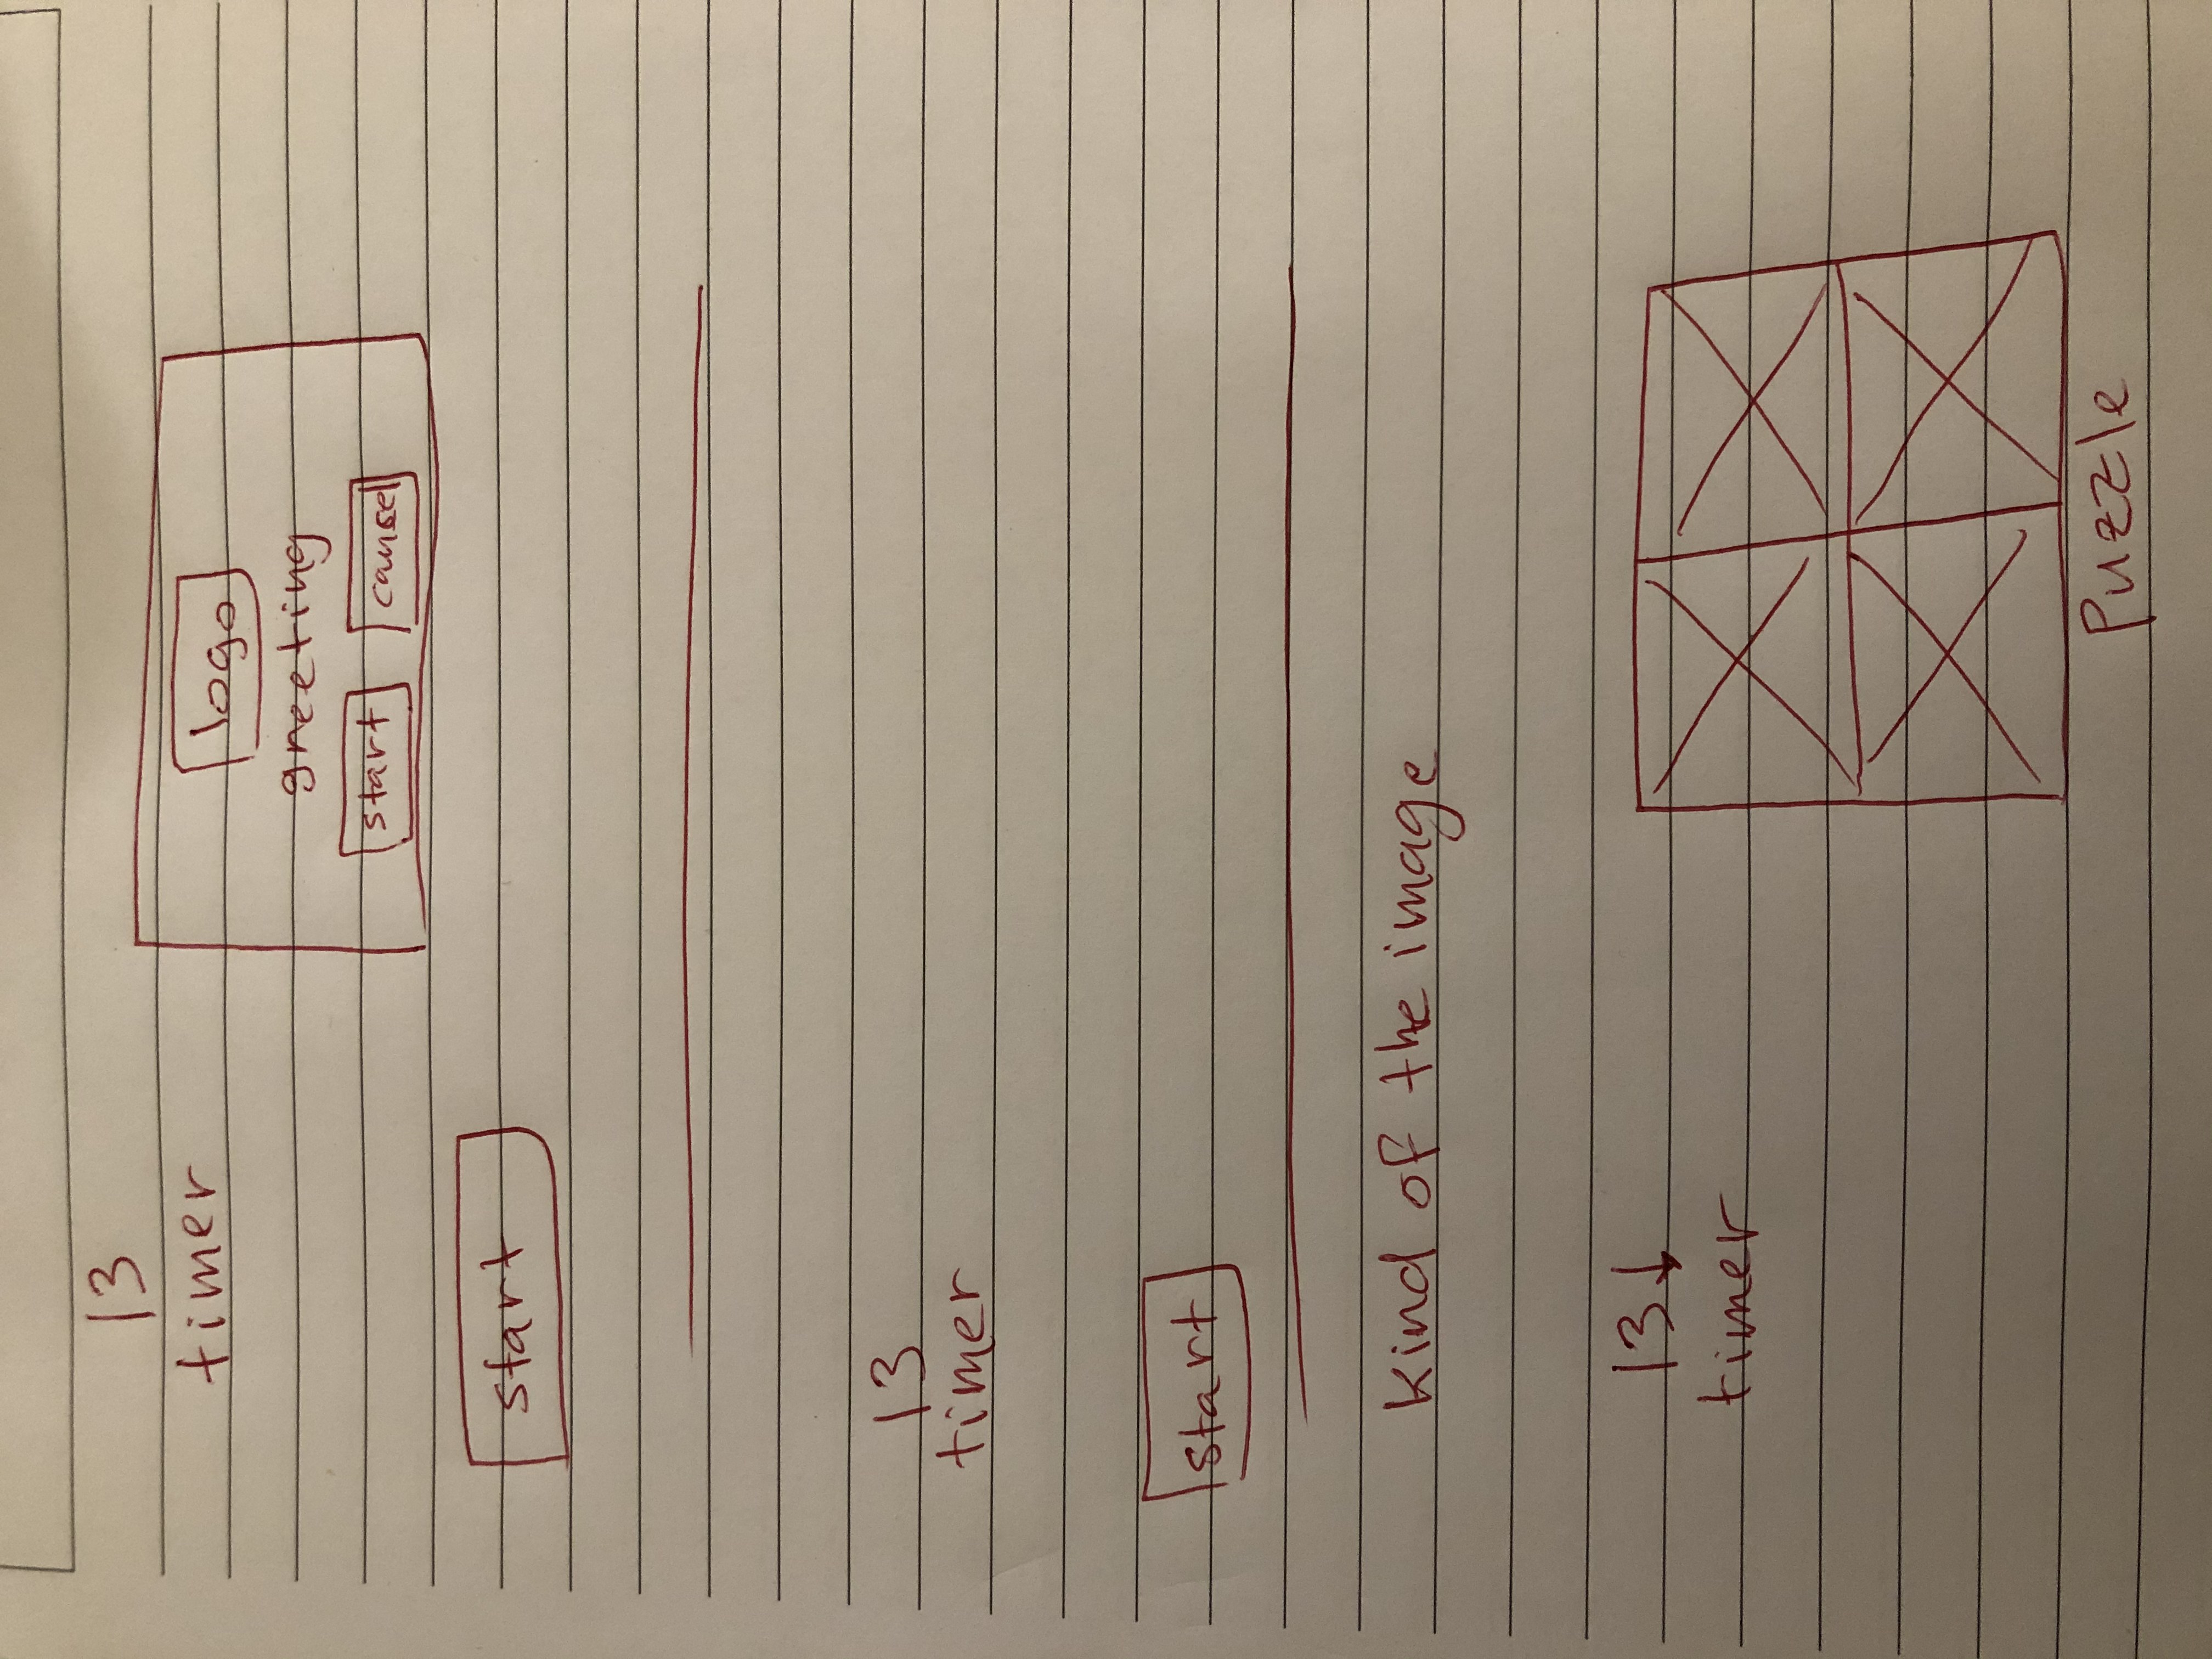 13
timer
logo
greeting
start cansel
start
13
timer
start
kind of the image
13↓
timer
Puzzle